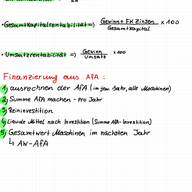 • Gesamtkapitalrentabilität = Gewinn + FK Zinsen / Gesamtkapital × 100
• Umsatzrentabilität = Gewinn / Umsatz × 100
Finanzierung aus AfA :
1) ausrechnen der AfA (im jew. Jahr, alle Maschinen)
2) Summe AfA machen - pro Jahr
3) Reinvestition
4) Liquide Mittel nach Investition (Summe AfA - Investition)
5) Gesamtwert Maschinen im nächsten Jahr
↳ AW - AfA